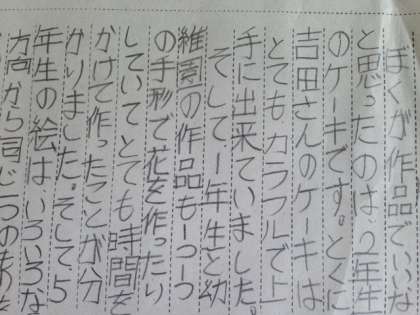 ぼくが作品でいいな
と思ったのは、2年生
のケーキです。とくに
吉田さんのケーキは
とてもカラフルで上
手に出来ていました。
そして一年生と幼
稚園の作品も一つ一つ
の手形で花を作ったり
していてとても時間を
かけて作ったことが分
かりました。そして5
年生の絵は、いろいろな
方向から同じ一つのものを